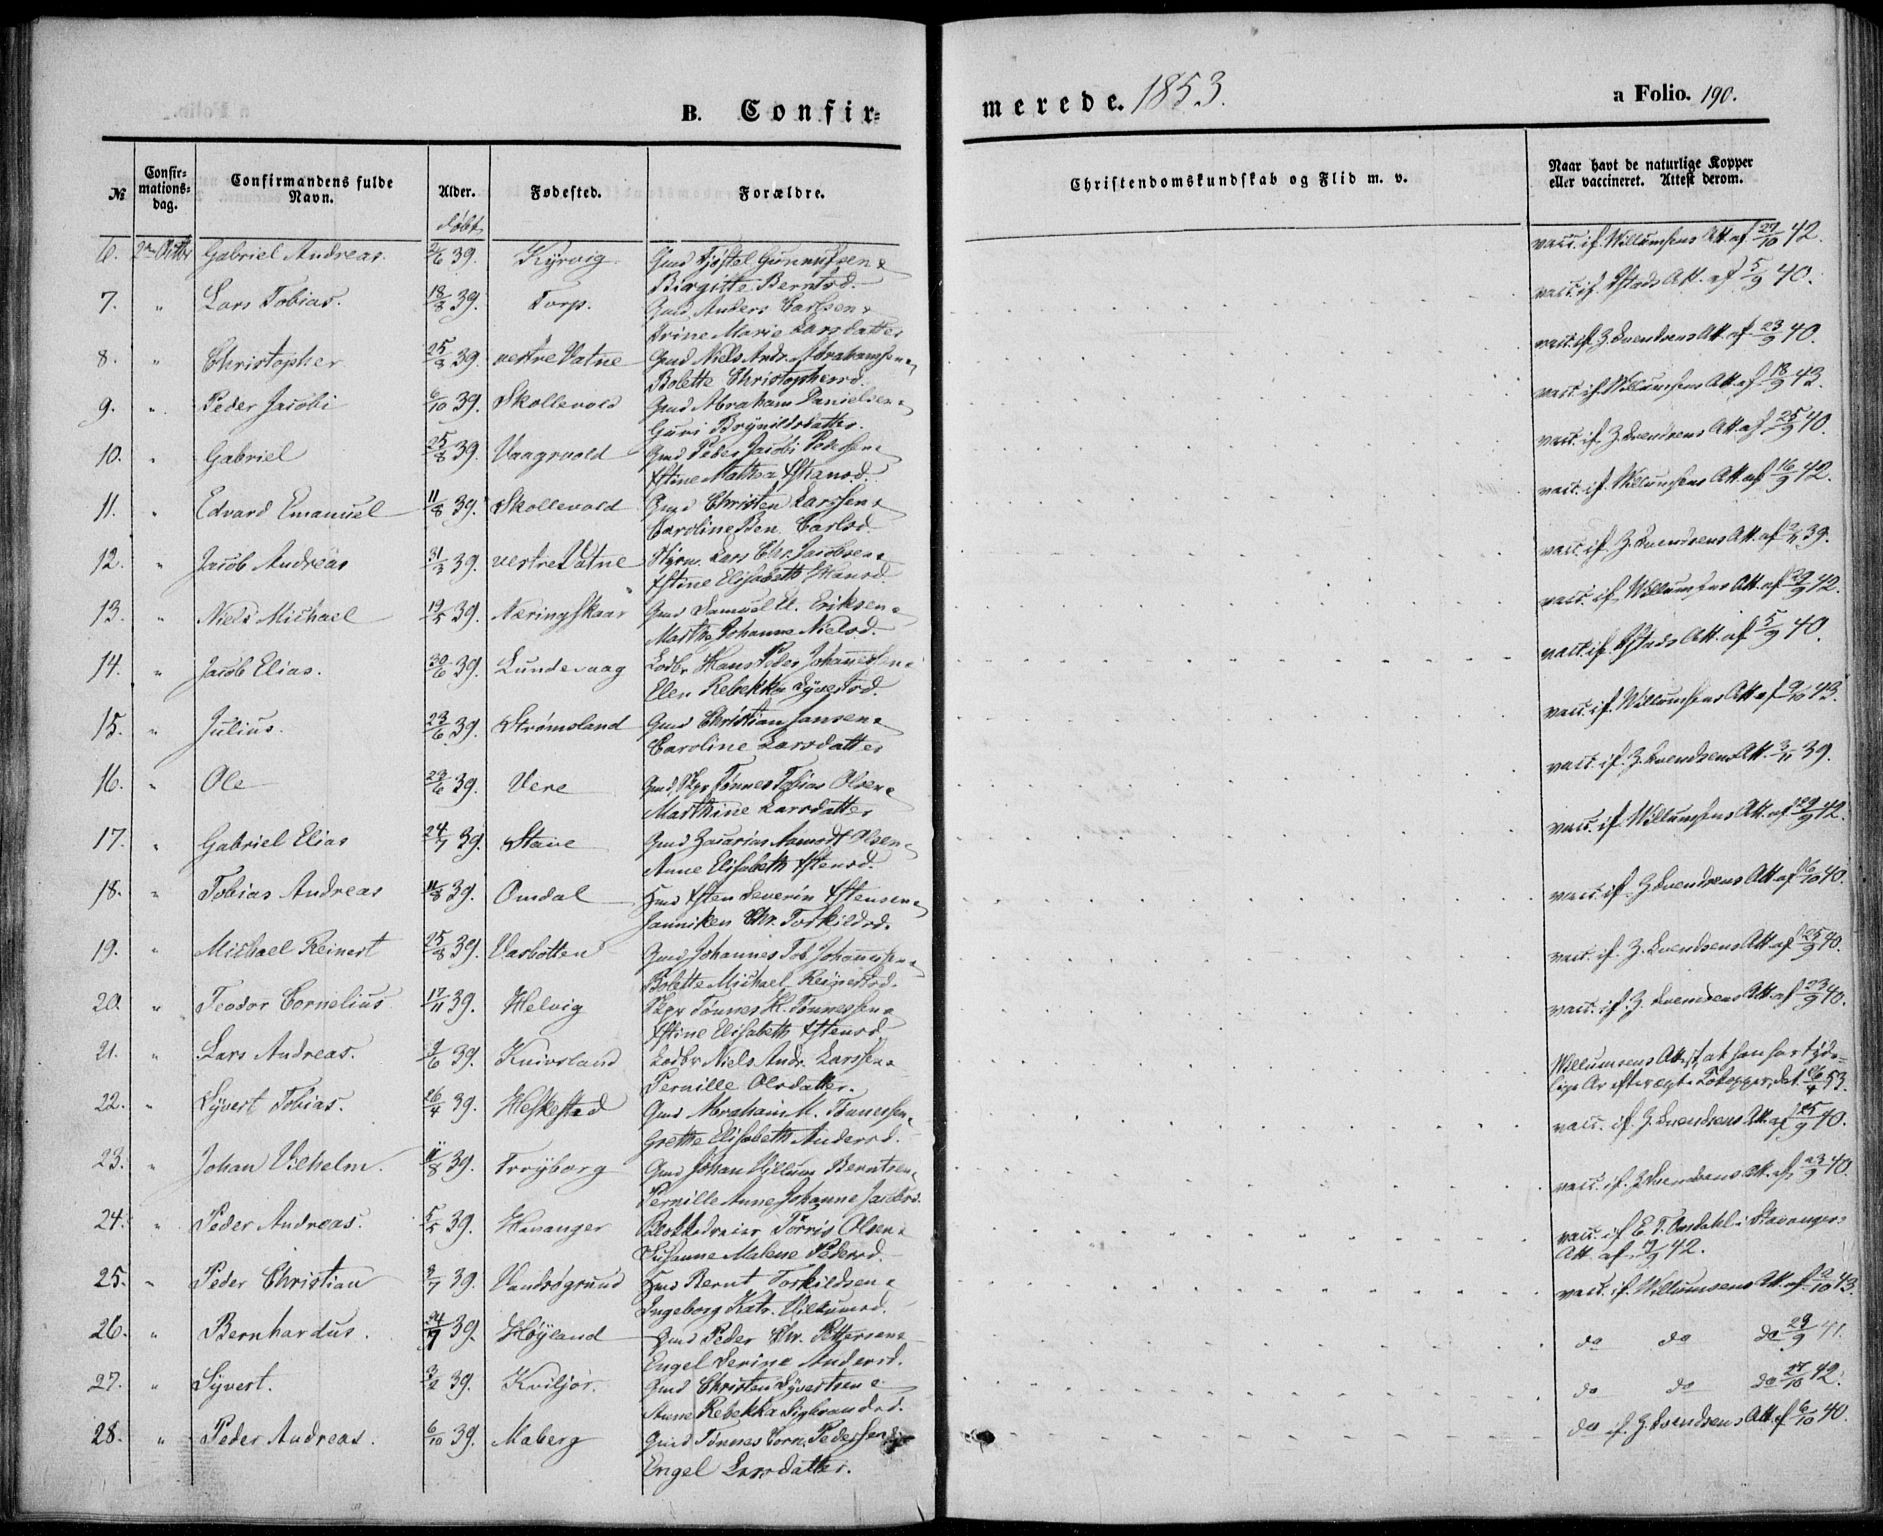 B. Confir=
merede. 1853.
a Folio. 190.
№
Confir-
mations-
dag.
Confirmandens fulde
Navn.
Alder.
døbt
Fødested.
Forældre.
Christendomskundskab og Flid m. v.
Naar havt de naturlige Kopper
eller vaccineret. Attest derom.
6. Gabriel Andreas. 39. Kyrvig Gmd Tjøstel Gunnufsen &
Birgitte Berntsd.
vacc. if. Willumsens Att. af 27/10 42.
7. " Lars Tobias. 18/8 39. Torp. Gmd Anders Carlsen &
Trine Marie Larsdatter
vacc. if. Att. af 5/9 40.
8. " Christopher 25/8 39. vestre Vatne Gmd Niels Andr. Abrahamsen &
Bolette Christophersd.
vacc. if. Z. Svendsens Att. af 23/9 40.
9. " Peder Jacobi 6/10 39. Skollevold Gmd Abraham Danielsen &
Guri Brynildsdatter.
vacc. if. Willumsens Att. af 18/9 43.
10. " Gabriel 25/8 39. Vaagsvold Gmd Peder Jacobi Pedersen &
Stine Mathea
vacc. if. Z. Svendsens Att. af 25/9 40.
11. " Edvard Emanuel 11/8 39. Skollevold Gmd Christen Larssen &
Caroline Ben. Carlsd.
vacc. if. Willumsens Att. af 16/9 42.
12. " Jacob Andreas 31/3 39. vestre Vatne Styrm. Lars Chr. Jacobsen &
Stine Elisabeth Hansd.
vacc. if. Z. Svendsens Att. af 39.
13. " Niels Michael 19/5 39. Næringskaar Gmd Samuel El. Eriksen &
Marthe Johanne Nielsd.
vacc. if. Willumsens Att. af 29/9 42.
14. " Jacob Elias. 30/6 39. Lundevaag Lodbr Hans Peder Johannessen &
Elen Rebekka Syvertsd.
vacc. if. Att. af 5/9 40.
15. " Julius. 23/6 39. Strømsland Gmd Christian Jansen &
Caroline Larsdatter
vacc. if. Willumsens Att. af 9/10 43.
16. " Ole 23/6 39. Vere Gmd, Skpr Tønnes Tobias Olsen &
Marthine Larsdatter
vacc. if. Z. Svendsens Att. 3/11 39.
17. " Gabriel Elias 24/7 39. Stave Gmd Zacarias Aamodt Olsen &
Anne Elisabeth Stensd.
vacc. if. Willumsens Att. af 29/9 42.
18. " Tobias Andreas 11/8 39. Omdal Hmd Sten Severin Stensen &
Janniken Chr. Torkildsd.
vacc. if. Z. Svendsens Att. af 16/10 40.
19. " Michael Reinert 25/8 39. Vasbotten Gmd Johannes Tob. Johannesen &
Bolette Michael. Reinertsd.
vacc. if. Z. Svendsens Att. af 25/9 40.
20. " Teodor Cornelius 17/11 39. Helvig Skpr Tønnes H. Tønnessen &
Stine Elisabeth Stensd
vacc. if. Z. Svendsens Att. af 23/9 40.
21. " Lars Andreas. 9/6 39. Knivsland Lodbr Niels Andr. Larssen &
Pernille Olsdatter.
Willumsens Attest, at han har tyde-
lige Ar efter ægte Kokopper, dat. 26/4 53.
22. " Syvert Tobias. 26/4 39. Heskestad Gmd Abraham M. Tønnessen &
Grethe Elisabeth Andersd.
vacc. if. Z. Svendsens Att. af 25/9 40.
23. " Johan Vilhelm. 11/8 39. Frøyborg Gmd Johan Villum Berntsen &
Pernille Anne Johanne Jacobsd.
vacc. if. Z. Svendsens Att. af 23/9 40.
24. " Peder Andreas. 5/5 39. Havanger Tørris Olsen &
Susanne Malene Pedersd.
vacc. if E. T. Omdahl i Stavanger
Att. af 42.
25. " Peder Christian 39. Vandsøgrund Hmd Bernt Torkildsen &
Ingeborg Katr. Villumsd.
vacc. if. Willumsens Att. af 2/10 43.
26. " Bernhardus. 39. Høyland Gmd Peder Chr. Pettersen &
Engel Serine Andersd.
do do do 29/9 41.
27. " Syvert. 39. Kviljor. Gmd Christen Syvertsen &
Anne Rebekka Sigbrandsd.
do do do 27/10 42.
28. " Peder Andreas. 6/10 39. Maberg Gmd Tønnes Corn. Pedersen &
Engel Larsdatter.
do if. Z. Svendsens Att. af 6/10 40.